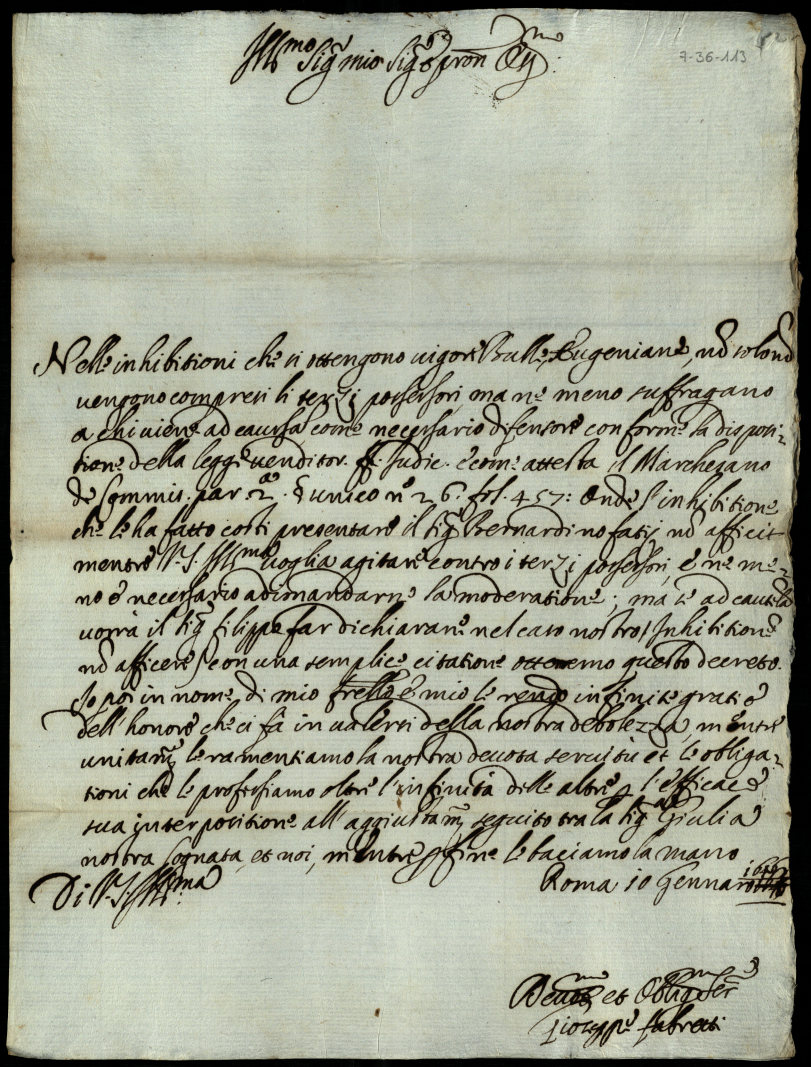 Ill.mo Sig.r mio Sig.r e pron Oss.mo
7-36-113
Nelle inhibitioni che si ottengono vigore Bullę Eugenianę, nõ solo nõ
vengono compresi li terzi possessori, ma ne meno suffragano
a chi viene ad caussã come necessario difensore conforme la disposi-
tione della legge venditor. ff. Judic. e come attesta il Marchesano
de Commis. par. 2.ª § unico nº 26. fol. 457: Onde l'inhibitione
che le ha fatto costi presentare il sig.r Bernardino fatij nõ afficit
mentre V.S. Ill.ma voglia agitare contro i terzi possessori, e ne me-
no è necessario adimandarne la moderatione; ma se ad cautelã
vorrà il sig.r filippo far dichiarare nel caso nostro l'Inhibitione
nõ afficere con una semplice citatione otteremo questo decreto.
Io poi in nome di mio frello e mio le rendo infinite gratie
dell'honore che ci fà in valersi della nostra debolezza, mentre
unitam.te le ramentiamo la nostra devota servitù et le obliga-
tioni che le professiamo oltre l'infinità delle altre p l'efficace
sua interpositione all'aggiustam.to seguito tra la sig.ra Giulia
nostra Cognata, et noi, mentre p fine le baciamo la mano
Di V.S. Ill.ma
Roma 10 Gennaro
Devot.mo et Oblig.mo Ser.e
Gioseppe fabretti